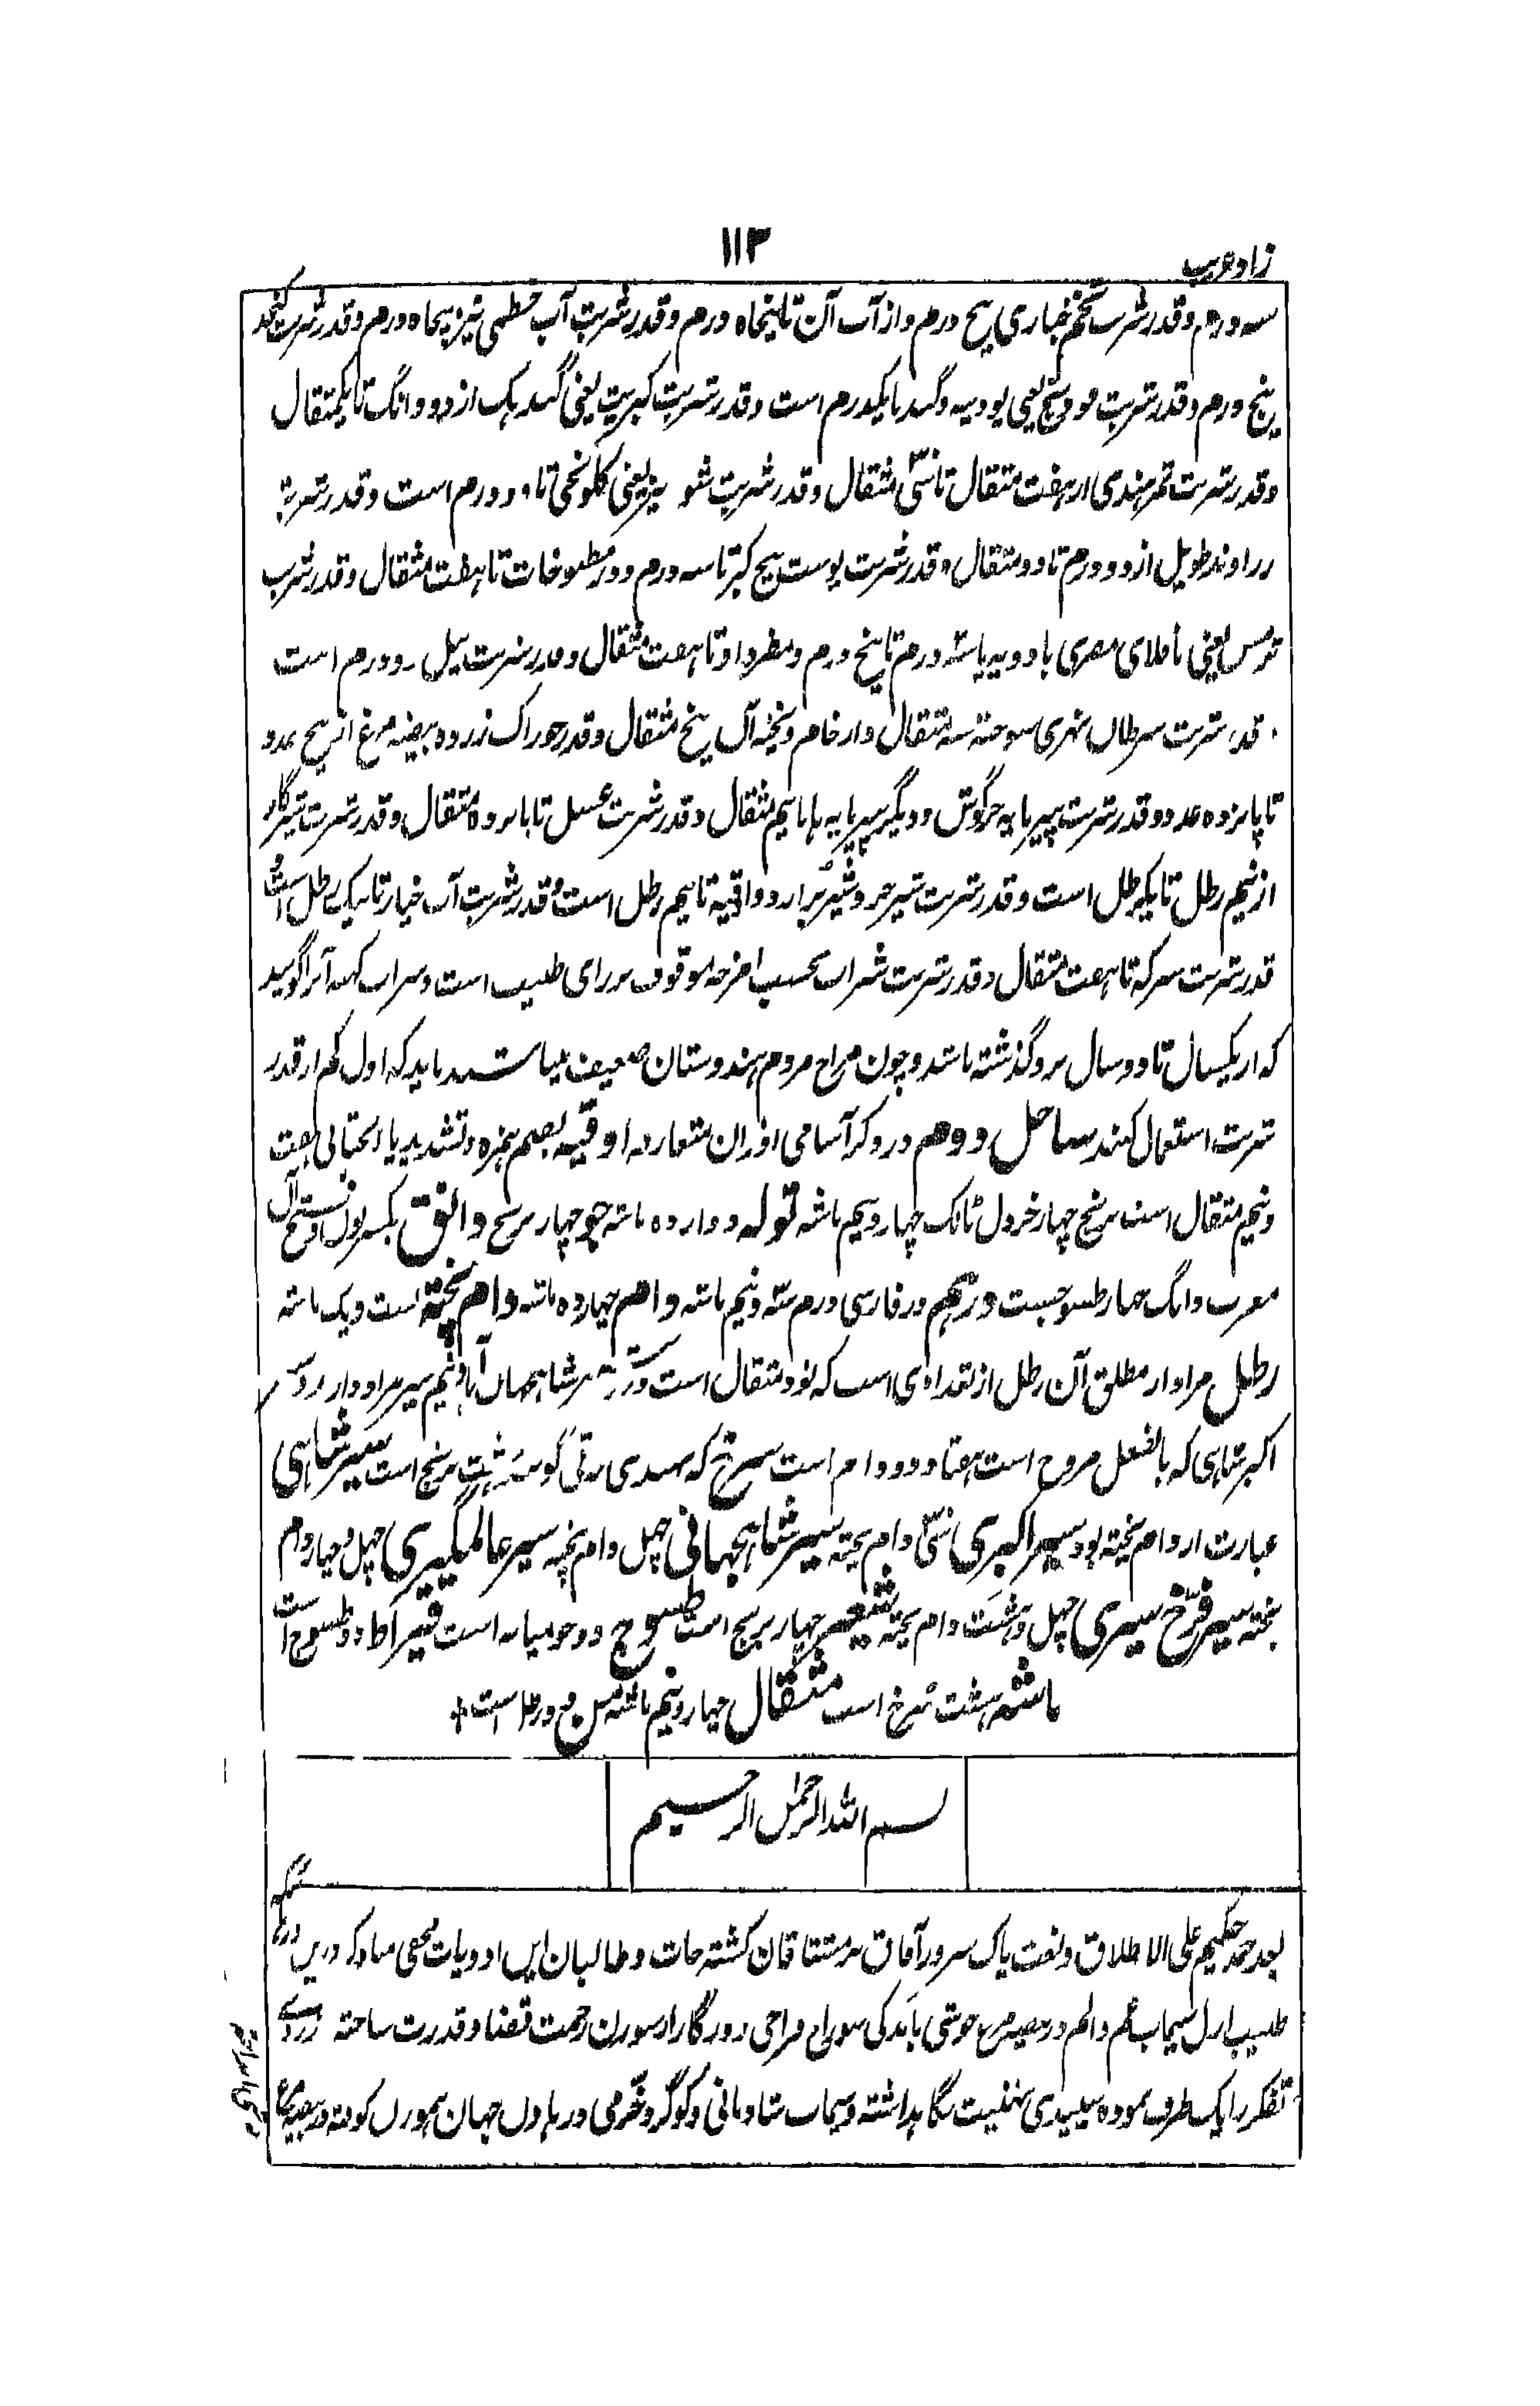 زاد غریب
۱۱۳
سه درم و قدر شربت تخم خبازی پنج درم و از آب آن تا پنجاه درم و قدر شربت آب خطمی نیز پنجاه درم و قدر شربت کنجد
پنج درم و قدر شربت یعنی تا یکدرم است و قدر شربت کبریت یعنی گندهک از دو دانگ تا یکمثقال
و قدر شربت تمر هندی از هفت مثقال تا سی مثقال و قدر شربت شونیز یعنی کلونجی تا دو درم است و قدر شربت
زراوند طویل از دو درم تا دو مثقال و قدر شربت پوست بیخ کبر تا سه درم و در مطبوخات تا هفت مثقال و قدر شربت
ترمس یعنی باقلای مصری با دویه باشه درم تا پنج درم و مفردا و تا هفت مثقال و قدر شربت بیل دو درم است
و قدر شربت سرطان نهری سوخته سه مثقال و از خام و پخته آن پنج مثقال و قدر خوراک زرده بیضه مرغ از پنج عدد
تا پانزده عدد و قدر شربت پنیر مایه خرگوش و دیگر پنیر مایه ها تا نیم مثقال و قدر شربت عسل تا پانزده مثقال و قدر شربت شیر گاو
از نیم رطل تا یکرطل است و قدر شربت شیر خر و شیر بز از دو اوقیه تا نیم رطل است و قدر شربت آب خیار تا یک رطل است و
قدر شربت سرکه تا هفت مثقال و قدر شربت شراب بحسب امزجه موقوف بر رای طبیب است و سراب کهنه آنرا گویند
که از یکسال تا دو سال برو گذشته باشد و چون مزاج مردم هندوستان ضعیف میباشد باید که اول کم از قدر
شربت استعمال کنند ساحل دوم در ذکر آسامی اوزان متعارفه اوقیه بضم همزه و تشدید یا تحتانی هفت
و نیم مثقال است برنج چهار خردل ٹانک چهار و نیم ماشه توله دوازده ماشه جو چهار برنج دانق بکسر نون و فتح آن
معرب دانگ چهار طسوجست درهم در فارسی درم سه و نیم ماشه دام چهارده ماشه دام پخته است و یک ماشه
رطل مراد از مطلق آن رطل از بغدادی است که نود مثقال است شاهجهان آباد نیم سیر مراد دارند سیر
اکبر شاهی که بالفعل مروج است هفتاد و دو دام است سرخ که بهندی رتی گویند هشت برنج است سیر شاهی
عبارت از دام پخته بود سیر اکبری سی دام پخته سیر شاهجهانی چهل دام پخته سیر عالمگیری چهل و چهار دام
پخته سیر فرخ سیری چهل و هشت دام پخته شعیر چهار برنج است طسوج دو جو میانه است قیراط دو طسوج است
ماشه هشت سرخ است مثقال چهار و نیم ماشه من دو رطل است
بسم الله الرحمن الرحیم
بعد حمد حکیم علی الاطلاق و نعت پاک سرور آفاق بر مشتاقان کشته جات و طالبان این ادویات مخفی مباد که درین
طبیب ازل سیماب غم و الم در خوشی فراحی روزگار از سوزن رحمت قضا و قدرت ساخته
تفکر را یک طرف نموده سپیدی تهنیت نگاهداشته و سیماب شادمانی و گوگرد خرمی در هاون جهان کوفته